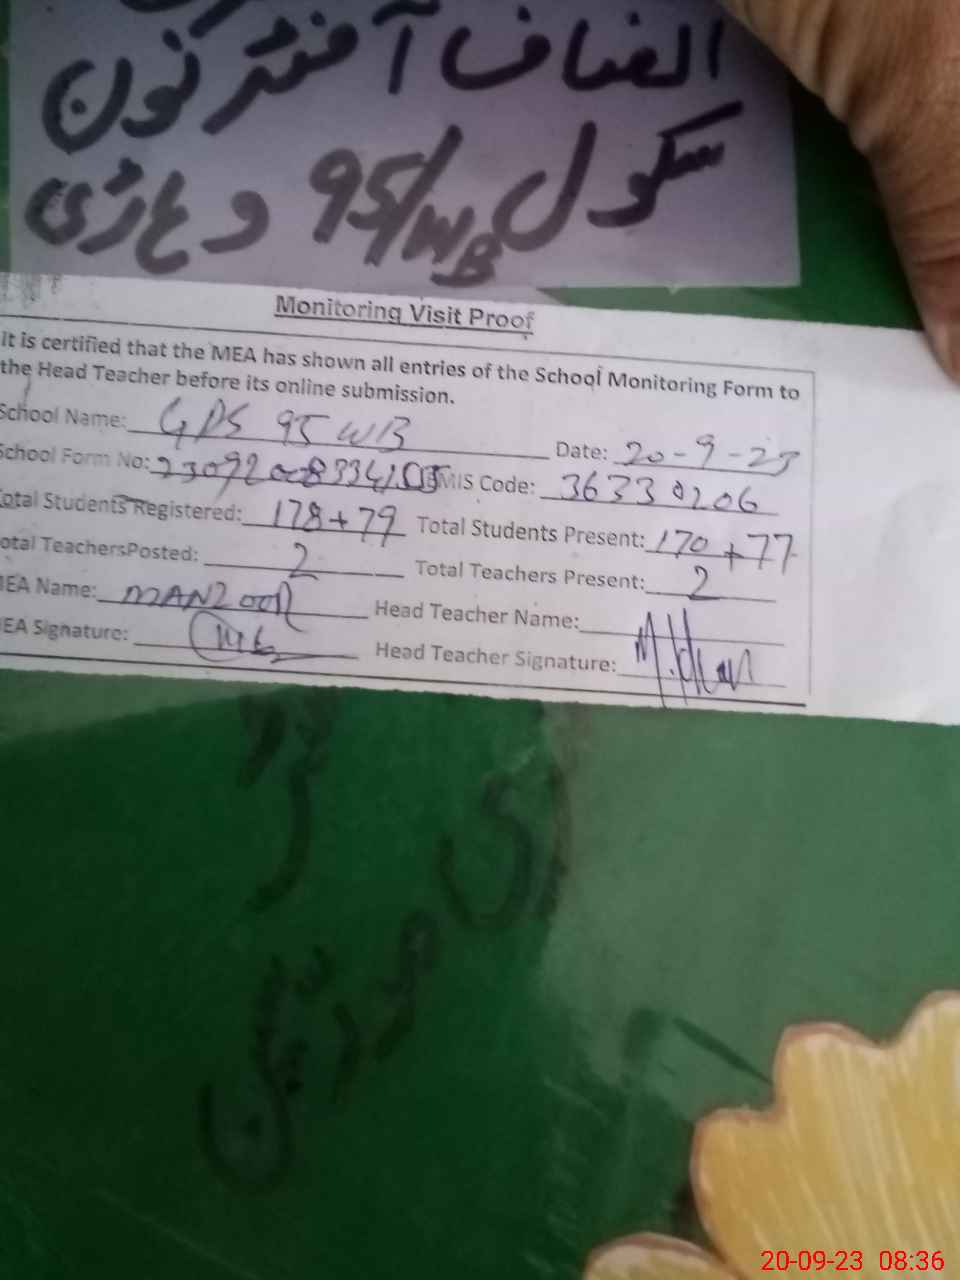 انصاف آفٹر نون
سکول 95/WB وہاڑی
Monitoring Visit Proof
It is certified that the MEA has shown all entries of the School Monitoring Form to
the Head Teacher before its online submission.
School Name: GPS 95 WB Date: 20-9-23
School Form No: EMIS Code: 36330206
Total Students Registered: 178+79 Total Students Present: 170+77
Total TeachersPosted: 2 Total Teachers Present: 2
MEA Name: MANZOOR Head Teacher Name:
MEA Signature: Head Teacher Signature:
20-09-23 08:36